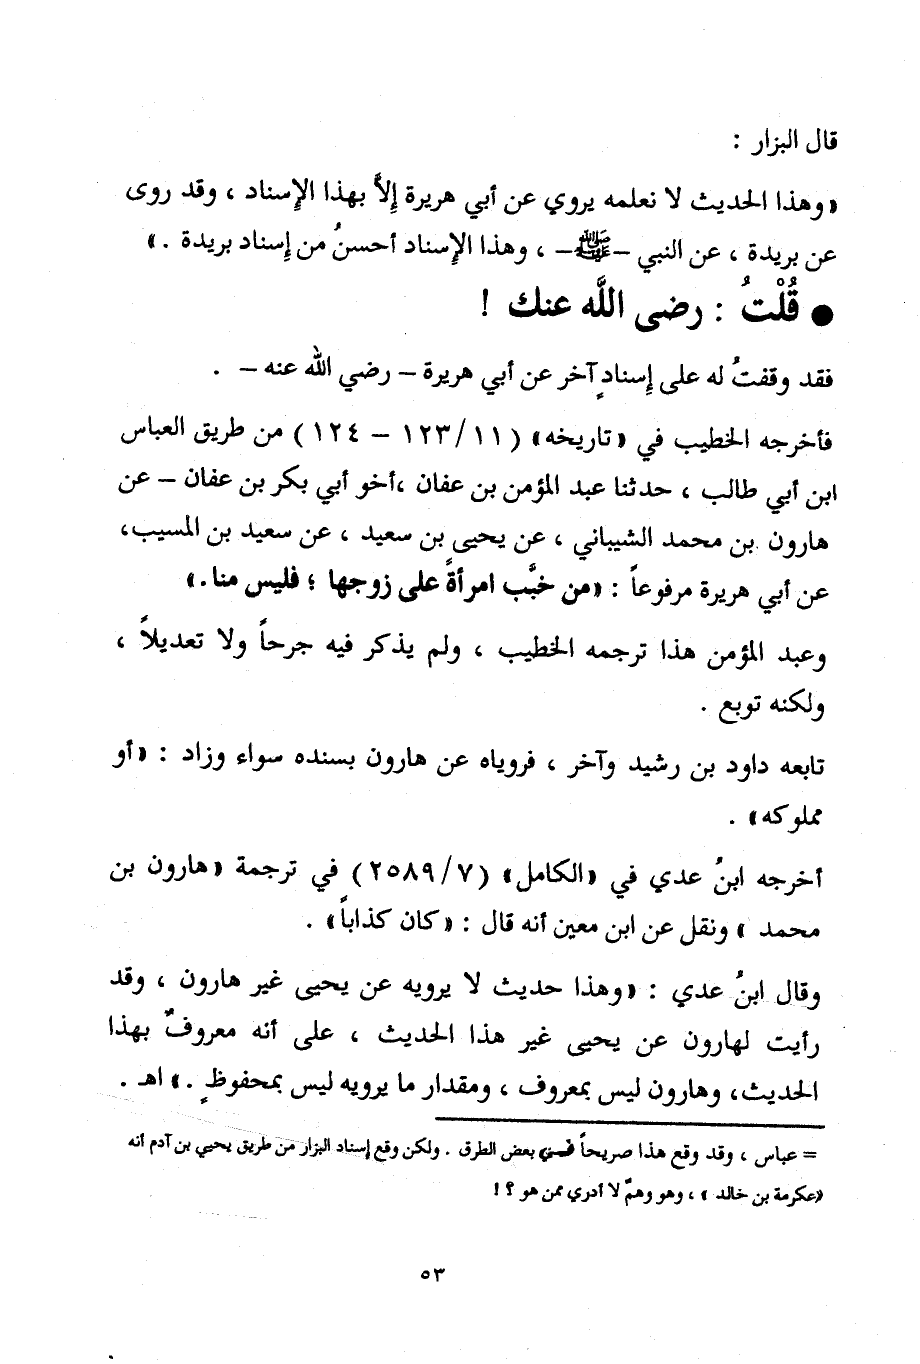 قال البزار :
«وهذا الحديث لا نعلمه يروي عن أبي هريرة إلاَّ بهذا الإسناد ، وقد روى
عن بريدة ، عن النبي –ﷺ– ، وهذا الإسناد أحسنُ من إسناد بريدة .»
● قُلْتُ : رضى اللَّه عنك !
فقد وقفتُ له على إسنادٍ آخر عن أبي هريرة – رضي الله عنه – .
فأخرجه الخطيب في «تاريخه» (١١/ ١٢٣ – ١٢٤) من طريق العباس
ابن أبي طالب ، حدثنا عبد المؤمن بن عفان ،أخو أبي بكر بن عفان – عن
هارون بن محمد الشيباني ، عن يحيى بن سعيد ، عن سعيد بن المسيب،
عن أبي هريرة مرفوعاً : «من خبَّب امرأةً على زوجها ؛ فليس منا.»
وعبد المؤمن هذا ترجمه الخطيب ، ولم يذكر فيه جرحاً ولا تعديلاً ،
ولكنه توبع .
تابعه داود بن رشيد وآخر ، فروياه عن هارون بسنده سواء وزاد : «أو
مملوكه» .
أخرجه ابنُ عدي في «الكامل» (٧/ ٢٥٨٩) في ترجمة «هارون بن
محمد » ونقل عن ابن معين أنه قال : «كان كذاباً» .
وقال ابنُ عدي : «وهذا حديث لا يرويه عن يحيى غير هارون ، وقد
رأيت لهارون عن يحيى غير هذا الحديث ، على أنه معروفٌ بهذا
الحديث، وهارون ليس بمعروف ، ومقدار ما يرويه ليس بمحفوظٍ .» اهـ .
= عباس ، وقد وقع هذا صريحاً فى بعض الطرق . ولكن وقع إسناد البزار من طريق يحيي بن آدم أنه
«عكرمة بن خالد » ، وهو وهمٌ لا أدري ممن هو ؟ !
٥٣